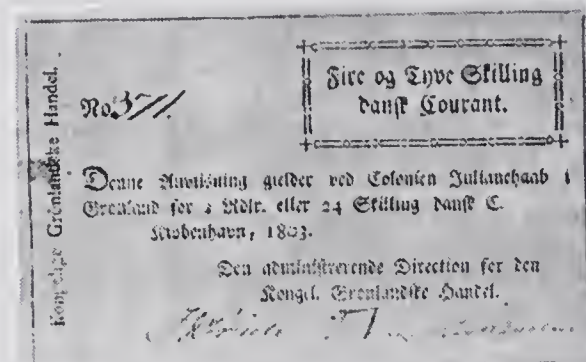 Kongelige Grönlandske Handel.
No. 371.
Fire og Tyve Skilling
dansk Courant.
Denne Anviisning gielder ved Colonien Julianehaab i
Grønland for ¼ Rdlr. eller 24 Skilling dansk C.
Kiøbenhavn, 1803.
Den administrerende Direction for den
Kongel. Grønlandske Handel.